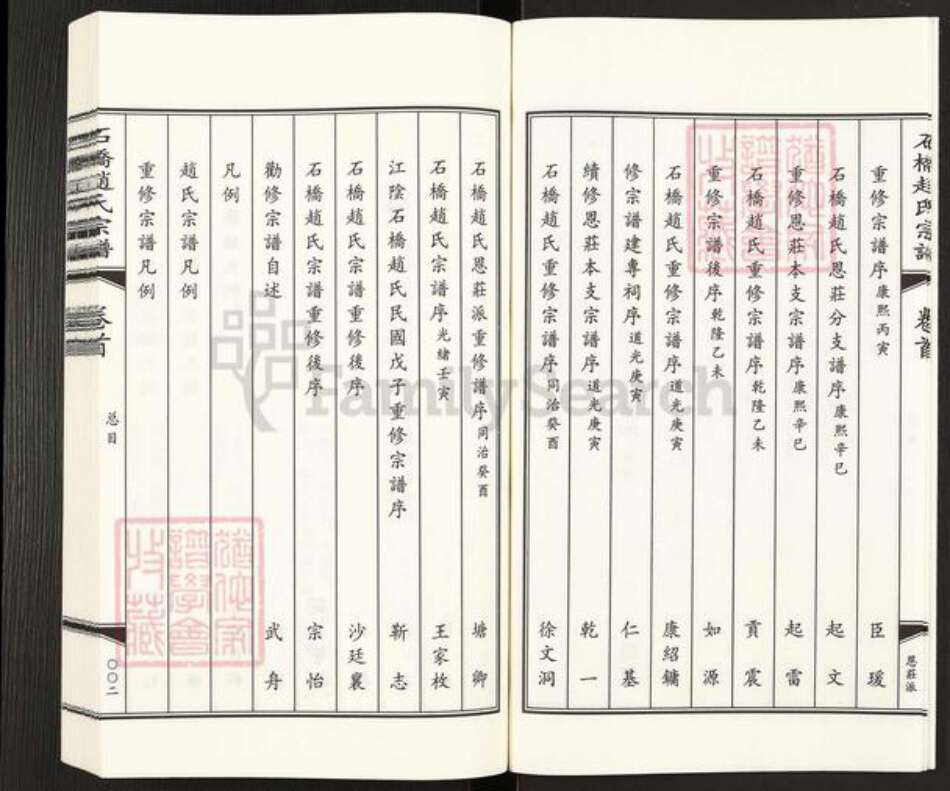 石橋趙氏宗譜 卷首 恩莊派
重修宗譜序康熙丙寅 臣瑗
石橋趙氏恩莊分支譜序康熙辛巳 起文
重修恩莊本支宗譜序康熙辛巳 起雷
石橋趙氏重修宗譜序乾隆乙未 貢震
重修宗譜後序乾隆乙未 如源
石橋趙氏重修宗譜序道光庚寅 康紹鏞
修宗譜建專祠序道光庚寅 仁基
續修恩莊本支宗譜序道光庚寅 乾一
石橋趙氏重修宗譜序同治癸酉 徐文洞
石橋趙氏恩莊派重修譜序同治癸酉 塘卿
石橋趙氏宗譜序光緒壬寅 王家枚
江陰石橋趙氏民國戊子重修宗譜序 靳志
石橋趙氏宗譜重修後序 沙廷襄
石橋趙氏宗譜重修後序 宗怡
勸修宗譜自述 武舟
凡例
趙氏宗譜凡例
重修宗譜凡例
石橋趙氏宗譜 卷首 总目 〇〇二
FamilySearch